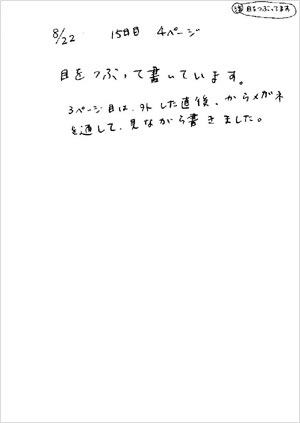 注 目をつぶってます
8/22 15日目 4ページ
目をつぶって書いています。
3ページ目は、外した直後、からメガネ
を通して、見ながら書きました。